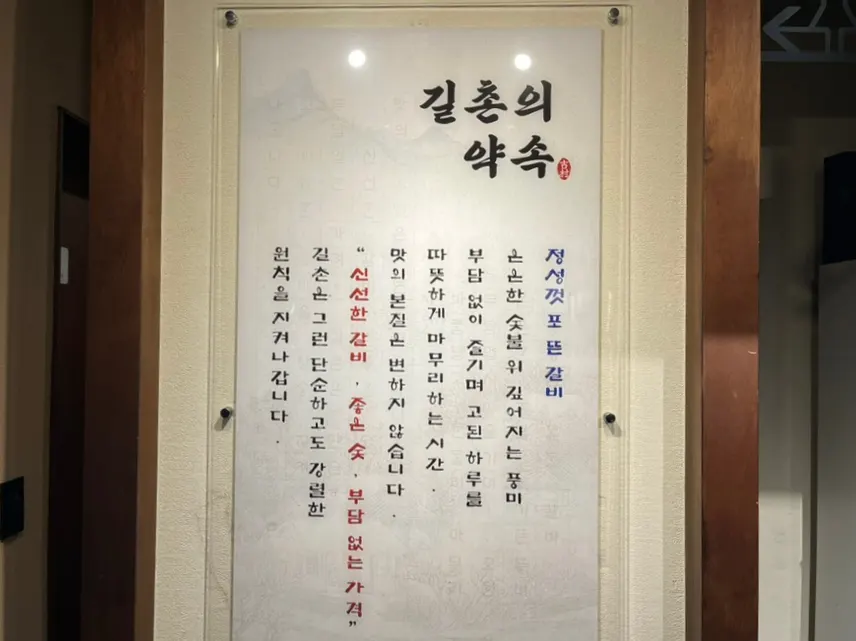 길촌의
약속
정성껏 포 뜬 갈비
은은한 숯불 위 깊어지는 풍미
부담 없이 즐기며 고된 하루를
따뜻하게 마무리하는 시간.
맛의 본질은 변하지 않습니다.
“신선한 갈비, 좋은 숯, 부담 없는 가격”
길촌은 그런 단순하고도 강렬한
원칙을 지켜나갑니다.